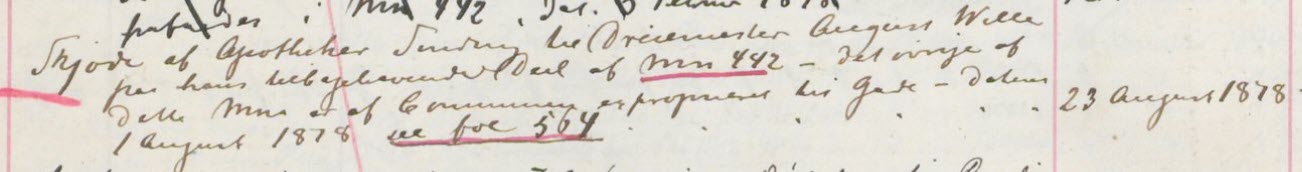 i Mn 442, dat.
Skjøde af Apotheker til Dreiermester August Wille
paa hans tilbageblevende Deel af Mn 442 – det øvrige af
dette Mn er af Communen exproprieret til Gade – datum
1 August 1878 see fol 564 . . . . . 23 August 1878